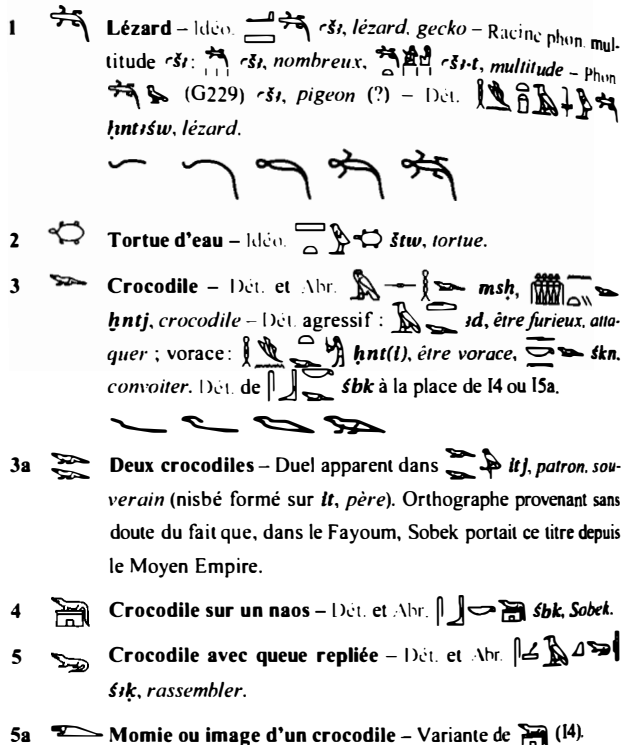 1 Lézard – Idéo. ꜥšꜣ, lézard, gecko – Racine phon. mul-
titude ꜥšꜣ: ꜥšꜣ, nombreux, ꜥšꜣ·t, multitude – Phon
(G229) ꜥšꜣ, pigeon (?) – Dét.
ḥntꜣśw, lézard.
2 Tortue d'eau – Idéo. štw, tortue.
3 Crocodile – Dét. et Abr. msḥ,
ḫntj, crocodile – Dét. agressif : ꜣd, être furieux, atta-
quer ; vorace : ḥnt(i), être vorace, śkn,
convoiter. Dét. de śbk à la place de I4 ou I5a.
3a Deux crocodiles – Duel apparent dans ỉtj, patron, sou-
verain (nisbé formé sur ỉt, père). Orthographe provenant sans
doute du fait que, dans le Fayoum, Sobek portait ce titre depuis
le Moyen Empire.
4 Crocodile sur un naos – Dét. et Abr. śbk, Sobek.
5 Crocodile avec queue repliée – Dét. et Abr.
śꜣḳ, rassembler.
5a Momie ou image d'un crocodile – Variante de (I4).